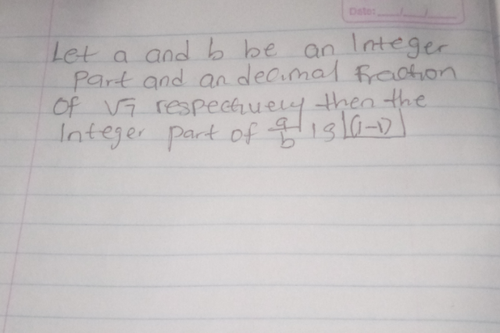 Date:
Let a and b be an Integer
Part and an decimal Fraction
of √7 respectively then the
Integer part of a/b is |(1-1)|